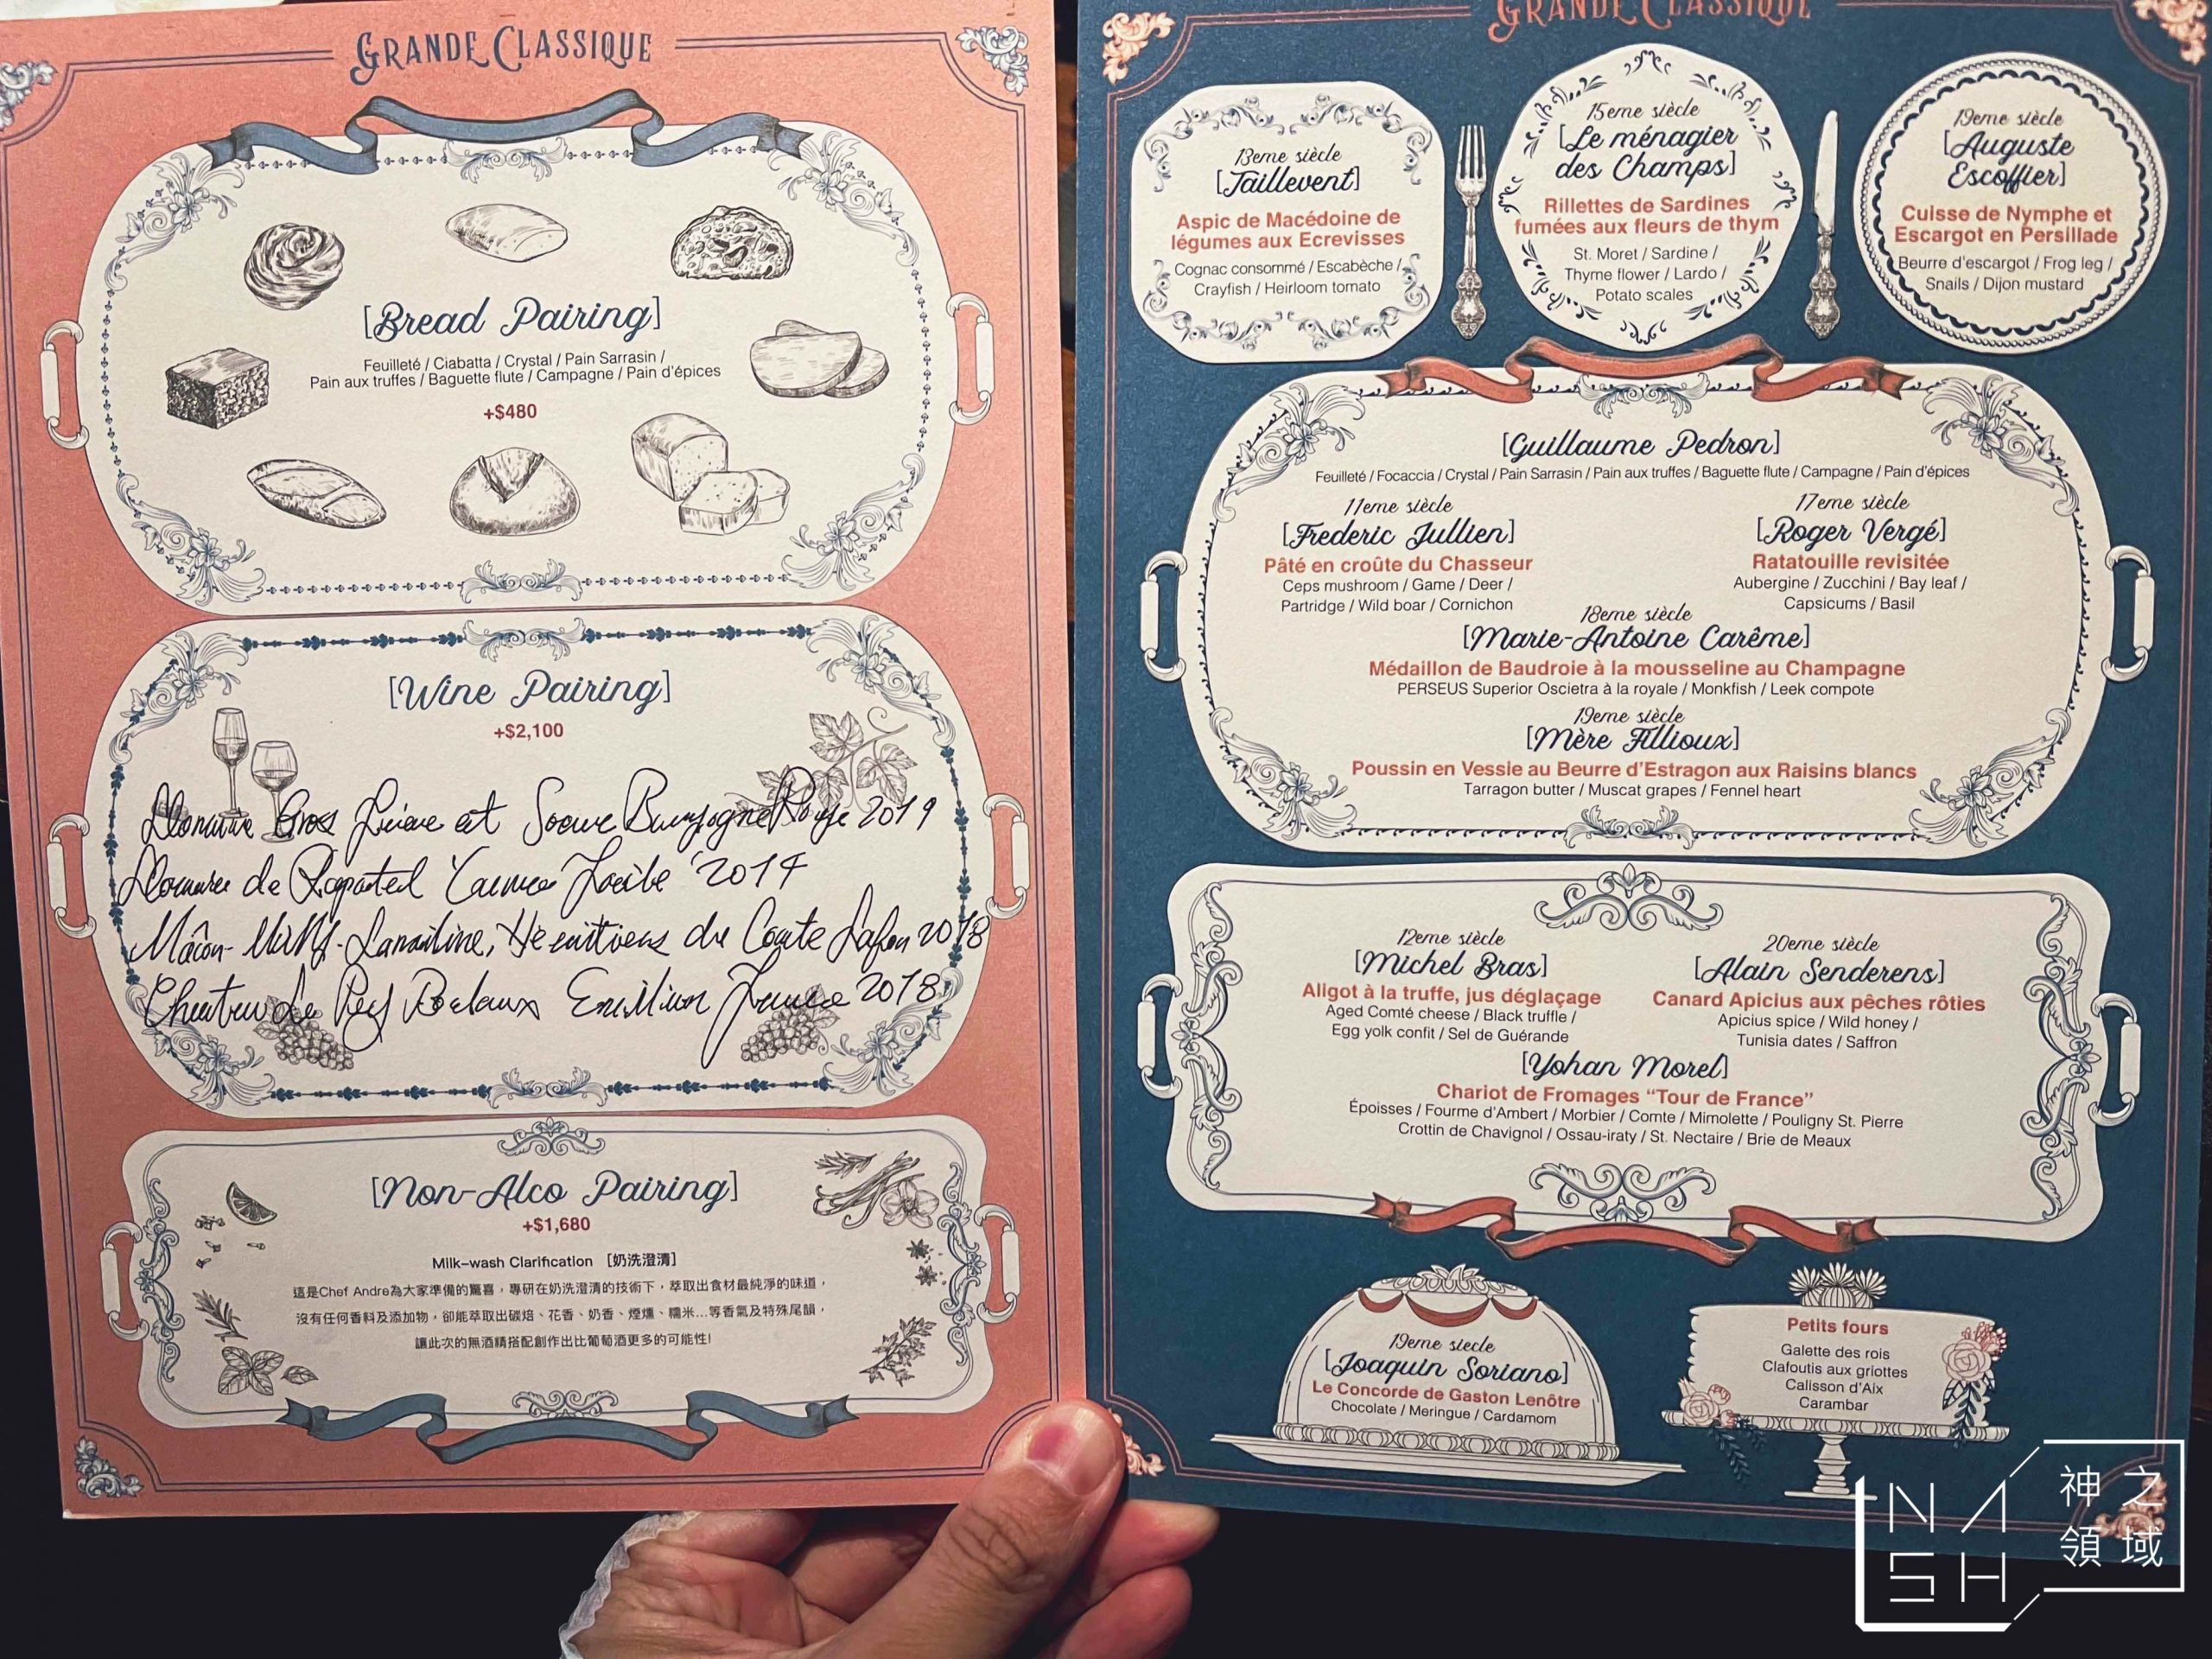 GRANDE CLASSIQUE
[Bread Pairing]
Feuilleté / Ciabatta / Crystal / Pain Sarrasin /
Pain aux truffes / Baguette flute / Campagne / Pain d'épices
+$480
[Wine Pairing]
+$2,100
Gros et Soeur 2019
de 2014
Mâcon- du Comte Lafon 2018
Le 2018
[Non-Alco Pairing]
+$1,680
Milk-wash Clarification [奶洗澄清]
這是Chef Andre為大家準備的驚喜，專研在奶洗澄清的技術下，萃取出食材最純淨的味道，
沒有任何香料及添加物，卻能萃取出碳焙、花香、奶香、煙燻、糯米...等香氣及特殊尾韻，
讓此次的無酒精搭配創作出比葡萄酒更多的可能性!
GRANDE CLASSIQUE
13eme siècle
[Taillevent]
Aspic de Macédoine de
légumes aux Ecrevisses
Cognac consommé / Escabèche /
Crayfish / Heirloom tomato
15eme siècle
[Le ménagier
des Champs]
Rillettes de Sardines
fumées aux fleurs de thym
St. Moret / Sardine /
Thyme flower / Lardo /
Potato scales
19eme siècle
[Auguste
Escoffier]
Cuisse de Nymphe et
Escargot en Persillade
Beurre d'escargot / Frog leg /
Snails / Dijon mustard
[Guillaume Pedron]
Feuilleté / Focaccia / Crystal / Pain Sarrasin / Pain aux truffes / Baguette flute / Campagne / Pain d'épices
11eme siècle
[Frederic Jullien]
Pâté en croûte du Chasseur
Ceps mushroom / Game / Deer /
Partridge / Wild boar / Cornichon
17eme siècle
[Roger Vergé]
Ratatouille revisitée
Aubergine / Zucchini / Bay leaf /
Capsicums / Basil
18eme siècle
[Marie-Antoine Carême]
Médaillon de Baudroie à la mousseline au Champagne
PERSEUS Superior Oscietra à la royale / Monkfish / Leek compote
19eme siècle
[Mère Fillioux]
Poussin en Vessie au Beurre d'Estragon aux Raisins blancs
Tarragon butter / Muscat grapes / Fennel heart
12eme siècle
[Michel Bras]
Aligot à la truffe, jus déglaçage
Aged Comté cheese / Black truffle /
Egg yolk confit / Sel de Guérande
20eme siècle
[Alain Senderens]
Canard Apicius aux pêches rôties
Apicius spice / Wild honey /
Tunisia dates / Saffron
[Yohan Morel]
Chariot de Fromages "Tour de France"
Époisses / Fourme d'Ambert / Morbier / Comte / Mimolette / Pouligny St. Pierre
Crottin de Chavignol / Ossau-iraty / St. Nectaire / Brie de Meaux
19eme siecle
[Joaquin Soriano]
Le Concorde de Gaston Lenôtre
Chocolate / Meringue / Cardamom
Petits fours
Galette des rois
Clafoutis aux griottes
Calisson d'Aix
Carambar
NASH
神之
領域